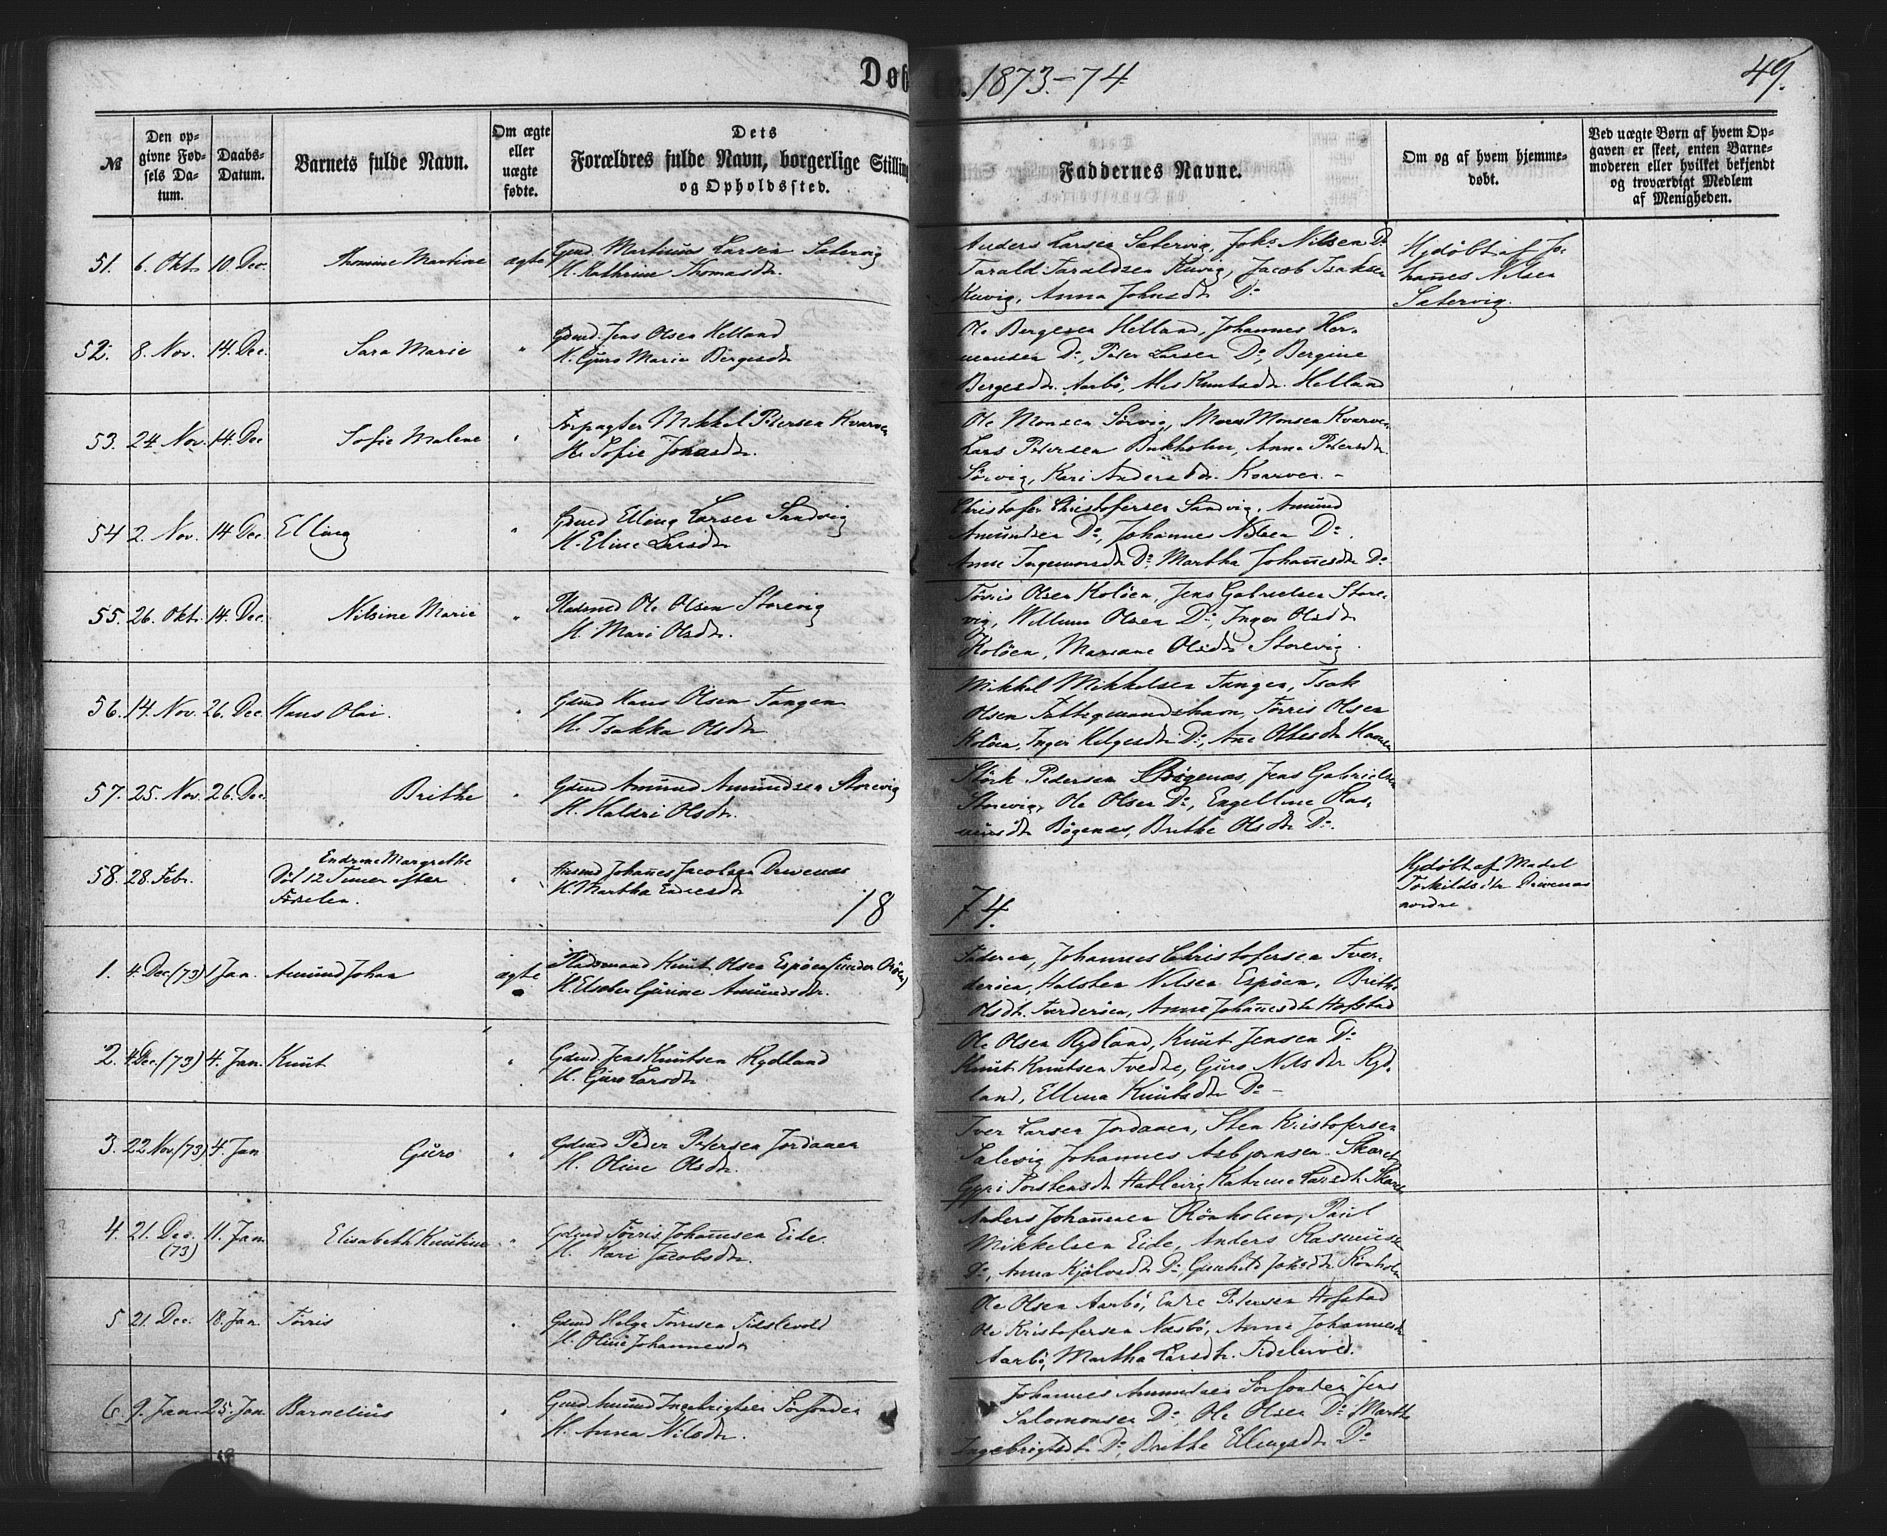 Døb
1873.-74
49.
№
Den op-
givne Fød-
sels Da-
tum.
Daabs-
Datum.
Barnets fulde Navn.
Om ægte
eller
uægte
fødte.
Dets
Forældres fulde Navn, borgerlige Stilling
og Opholdssted.
Faddernes Navne.
Om og af hvem hjemme-
døbt.
Ved uægte Børn af hvem Op-
gaven er skeet, enten Barne-
moderen eller hvilket bekjendt
og troværdigt Medlem
af Menigheden.
51. 6. Okt. 10. Dec. Thomine Martine ægte
Gmd Martinus Larsen Satervig
H. Kathrine Thomasdtr
Anders Larsen Satervig, Johs Nilsen Do
Tarald Taraldsen Kuvig, Jacob Isaksen
Kuvig, Anna Johnsdtr Do
Hjdøbt af Jo-
hannes Nilsen
Satervig.
52. 8. Nov. 14. Dec. Sara Marie "
Gdmd. Jens Olsen Helland
H. Guro Marie Bergesdtr
Ole Bergesen Helland, Johannes Her-
mansen Do, Peder Larsen Do, Bergine
Bergesdtr. Aarbö, Knutsdtr. Helland
53. 24. Nov. 14. Dec Sofie Malene "
Forpagter Mikkel Petersen Kvarven
H. Sofie Johnsdtr.
Ole Monsen Sörvig, Mons Monsen Kvarven
Lars Petersen Bukholm, Anna Petersdtr.
Sörvig, Kari Andersdtr. Kvarven. -
54 2. Nov. 14 Dec. Elling "
Gdmd Elling Larsen Sandvig
H. Eline Larsdtr
Christofer Christofersen Sandvig, Amund
Amundsen Do, Johannes Nilsen Do.
Anne Ingemorsdtr Do Martha Johannesdtr Do
55. 26. Okt. 14. Dec. Nilsine Marie "
Pladsmd Ole Olsen Storevig
H. Mari Olsdtr.
Törris Olsen Kolöen, Jens Gabrielsen Store-
vig, Willum Olsen Do, Inger Olsdtr
Kolöen, Mariane Olsdtr Storevig.
56. 14. Nov. 26. Dec. Hans Olai. "
Gdmd Hans Olsen Tangen
H. Isakka Olsdtr.
Mikkel Mikkelsen Tangen, Isak
Olsen Fattigmandshavn, Törris Olsen
Kolöen, Inger Helgesdtr Do, Ane Olsdtr
57. 25. Nov. 26. Dec. Brithe "
Gdmd Amund Amundsen Storevig
H. Haldri Olsdtr.
Störk Pedersen Bögenæs, Jens Gabrielsen
Storevig, Ole Olsen Do, Engeline Ras-
musdtr Bögenæs, Brithe Olsdtr Do.
58. 28. Febr. Endrine Margrethe
Död 12 Timer efter
Födselen.
"
Husmd Johannes Jacobsen Drivenæs
H. Martha Endresdtr
Hjdöbt af Madel
Torkildsdtr Drivenæs
nordre
1874.
1. 4. Dec. (73) 1 Jan. Amund Johan ægte
Pladsmand Knut Olsen Espöen (under Öen)
H. Elseber Gurine Amundsdtr.
Faderen, Johannes Christofersen Tver-
deröen, Halsten Nilsen Espöen, Brithe
Olsdtr. Tverderöen, Anne Johannesdtr Hofstad
2. 4. Dec. (73) 4. Jan. Knut "
Gdmd. Jens Knutsen Rydland
H. Guro Larsdtr.
Ole Olsen Rydland, Knut Jensen Do
Knut Knutsen Tvedte, Guro Nilsdtr Ryd-
land, Ellena Knutsdtr Do -
3. 22 Nov. (73) 4. Jan Guro "
Gdmd Peder Petersen Jordanen
H. Oline Olsdtr.
Iver Larsen Jordanen, Sten Kristofersen
Salevig Johannes Asbjornsen Skaret
Gyri Torstensdtr Hatlevig Katrine Larsdtr. Skaret
4. 21. Dec. (73) 11. Jan. Elisabeth Knutine "
Gdmd Törris Johannsen Eide.
H. Kari Jacobsdtr.
Anders Johannesen Rönholm, Paul
Mikkelsen Eide, Anders Rasmusen
Do, Anna Kjölvsdtr Do, Gunhild Johsdtr Rönholm
5 21. Dec. 18. Jan. Törris "
Gdmd Helge Torrisen Tidslevold
H. Oline Johannesdtr
Ole Olsen Aarbö, Endre Petersen Hofstad
Ole Kristofersen Næsbö, Anna Johannesdtr
Aarbö, Martha Larsdtr. Tidslevold.
6. 9. Jan. 25. Jan Barnelius "
Gmd. Amund Ingebrigtsen Sörfonden
H. Anna Nilsdtr.
Johannes Amundsen Sörfonden Jens
Salomonsen Do, Ole Olsen Do, Martha
Ingebrigtsdtr Do Brithe Ellingsdtr Do